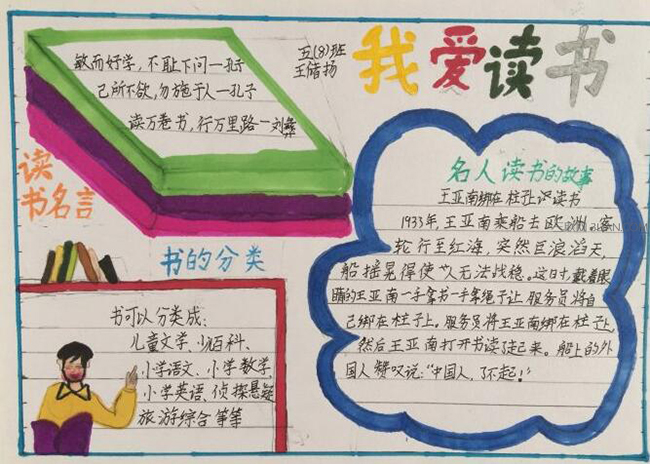 我爱读书
五(8)班
王储扬
敏而好学，不耻下问一孔子
己所不欲，勿施于人一孔子
读万卷书，行万里路一刘彝
读
书名言
书的分类
书可以分类成：
儿童文学、少儿百科、
小学语文、小学数学、
小学英语、侦探悬疑
旅游综合等等
名人读书的故事
王亚南绑在柱子上读书
1933年，王亚南乘船去欧洲。客
轮行至红海，突然巨浪滔天，
船摇晃得使人无法战稳。这日寸，戴着眼
睛的王亚南一手拿书一手拿绳子让服务员将自
己绑在柱子上。服务员将王亚南绑在柱子上，
然后王亚南打开书读起来。船上的外
国人赞叹说："中国人，了不起！"